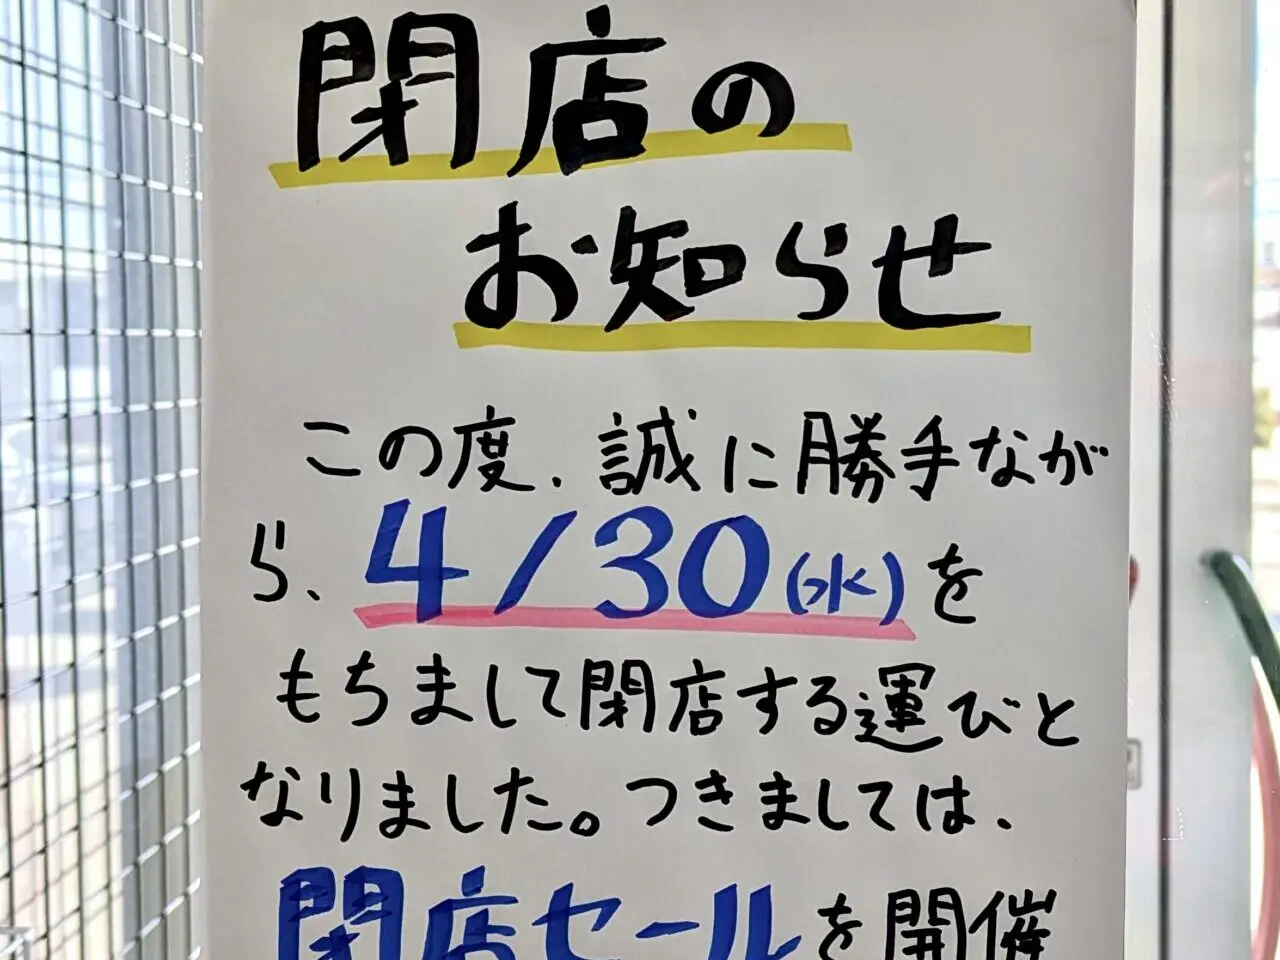 閉店の
お知らせ
この度、誠に勝手なが
ら、4/30(水)を
もちまして閉店する運びと
なりました。つきましては、
閉店セールを開催